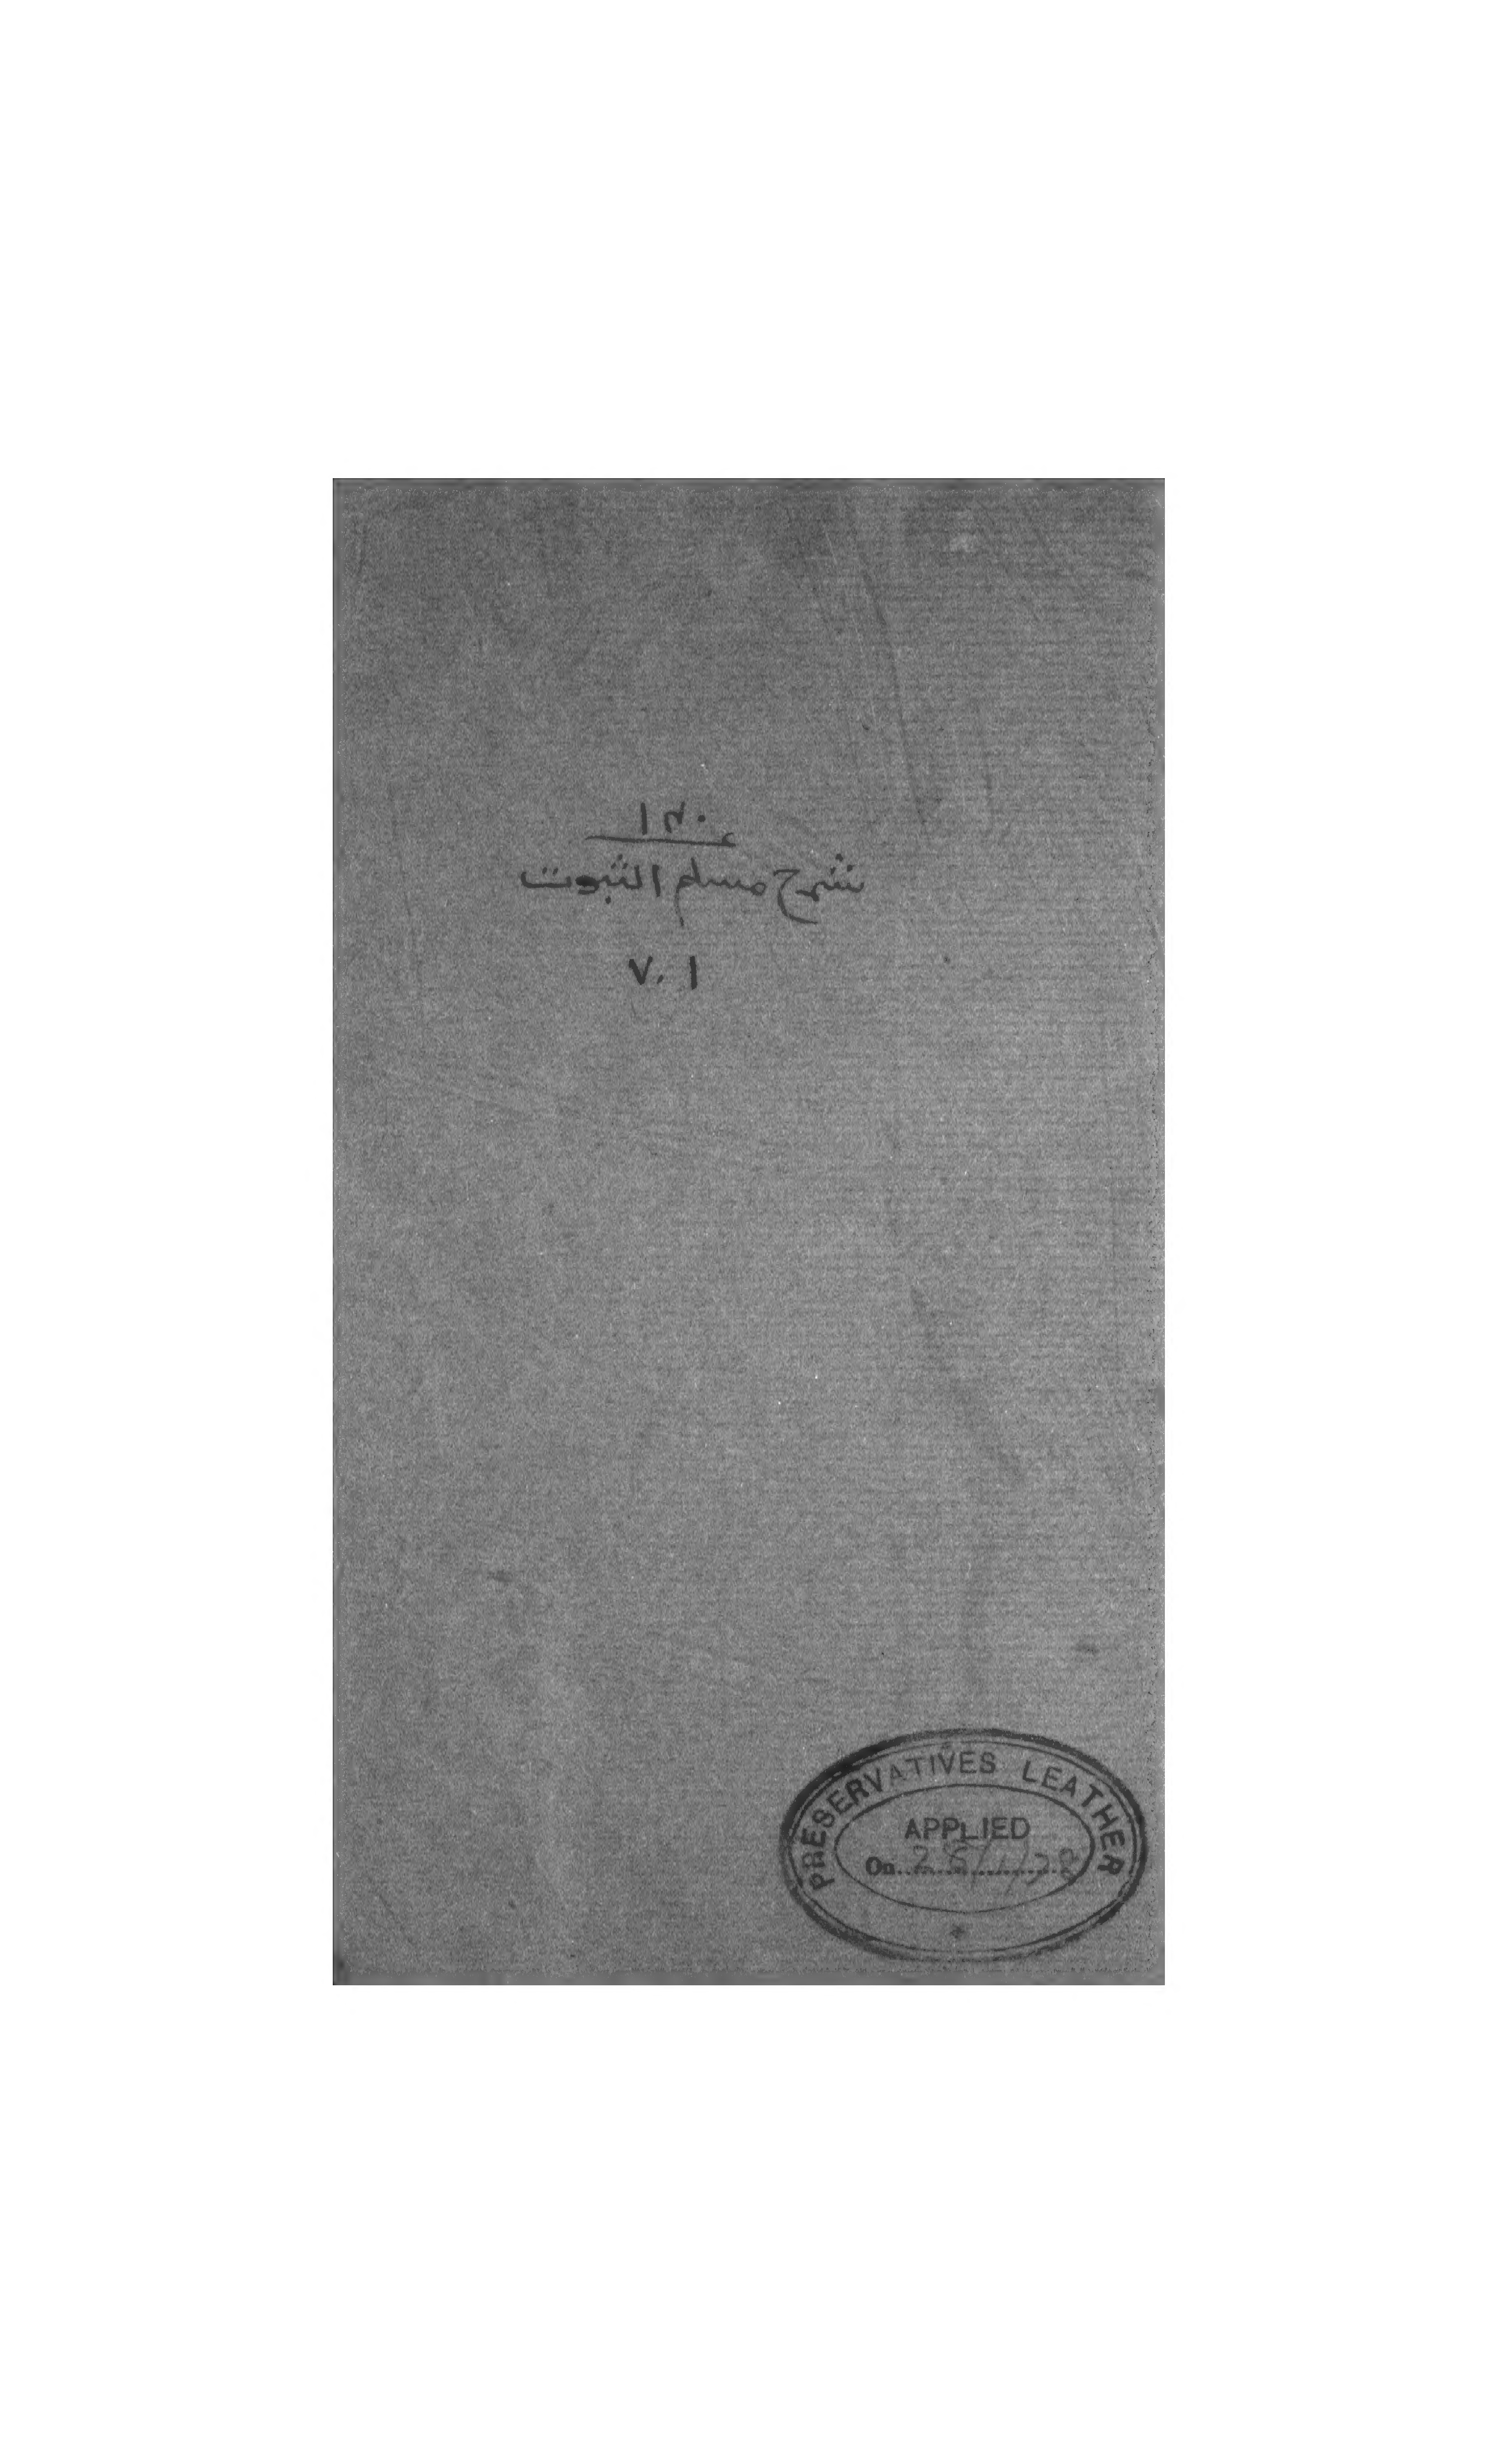 شرح مسلم الثبوت
٧٠١
PRESERVATIVES LEATHER
APPLIED
On